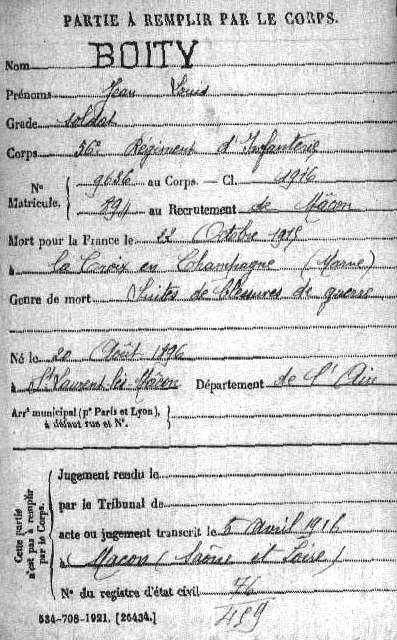 PARTIE À REMPLIR PAR LE CORPS.
Nom BOITY
Prénoms Jean Louis
Grade soldat
Corps 56e Régiment d'Infanterie
No Matricule. 9686 au Corps. — Cl. 1916
894 au Recrutement de Mâcon
Mort pour la France le 22 Octobre 1915
à La Croix en Champagne (Marne)
Genre de mort Suites de blessures de guerre
Né le 20 Août 1896
à St Laurent lès Mâcon Département de l'Ain
Arrt municipal (pr Paris et Lyon),
à défaut rue et No.
Cette partie
n'est pas à remplir
par le Corps.
Jugement rendu le
par le Tribunal de
acte ou jugement transcrit le 5 avril 1916
à Macon (Saône et Loire)
No du registre d'état civil 76
534-708-1921. [26434.]